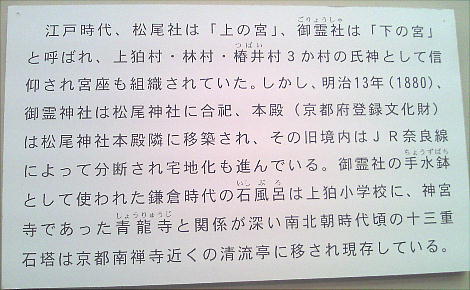 江戸時代、松尾社は「上の宮」、御霊社は「下の宮」
と呼ばれ、上狛村・林村・椿井村3か村の氏神として信
仰され宮座も組織されていた。しかし、明治13年(1880)、
御霊神社は松尾神社に合祀、本殿(京都府登録文化財)
は松尾神社本殿隣に移築され、その旧境内はJR奈良線
によって分断され宅地化も進んでいる。御霊社の手水鉢
として使われた鎌倉時代の石風呂は上狛小学校に、神宮
寺であった青龍寺と関係が深い南北朝時代頃の十三重
石塔は京都南禅寺近くの清流亭に移され現存している。